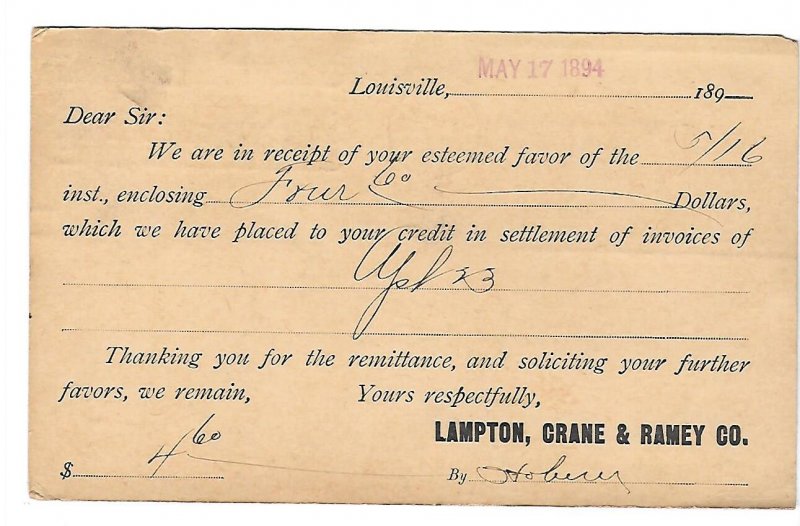 MAY 17 1894
Louisville, 189
Dear Sir:
We are in receipt of your esteemed favor of the 5/16
inst., enclosing Four 60 Dollars,
which we have placed to your credit in settlement of invoices of
Apl 23
Thanking you for the remittance, and soliciting your further
favors, we remain, Yours respectfully,
LAMPTON, CRANE & RAMEY CO.
$ 4 60 By